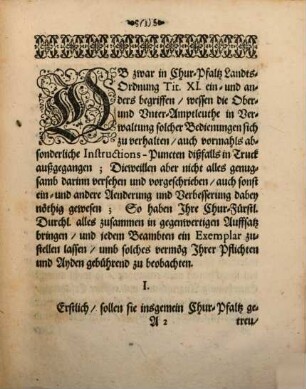 (3)
OB zwar in Chur-Pfaltz Landts-
Ordnung Tit. XI. ein- und an-
ders begriffen / wessen die Ober-
und Unter-Amptleuthe in Ver-
waltung solcher Bedienungen sich
zu verhalten / auch vormahls ab-
sonderliche Instructions-Puncten dißfalls in Truck
außgegangen; Dieweillen aber nicht alles genug-
samb darinn versehen und vorgeschrieben / auch sonst
ein- und andere Aenderung und Verbesserung dabey
nöthig gewesen; So haben Ihre Chur-Fürstl.
Durchl. alles zusammen in gegenwertigen Auffsatz
bringen / und jedem Beambten ein Exemplar zu-
stellen lassen / umb solches vermög Ihrer Pflichten
und Ayden gebührend zu beobachten.
I.
Erstlich / sollen sie insgemein Chur-Pfaltz ge-
A 2
treu /